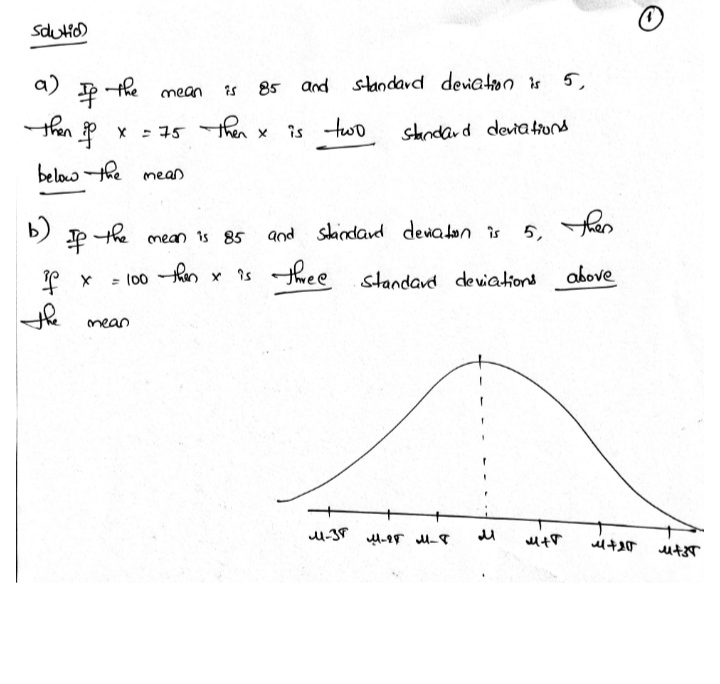 ①
Solution
a) If the mean is 85 and standard deviation is 5,
then if x = 75 then x is two standard deviations
below the mean
b) If the mean is 85 and standard deviation is 5, then
if x = 100 then x is three standard deviations above
the mean
μ-3σ μ-2σ μ-σ μ μ+σ μ+2σ μ+3σ